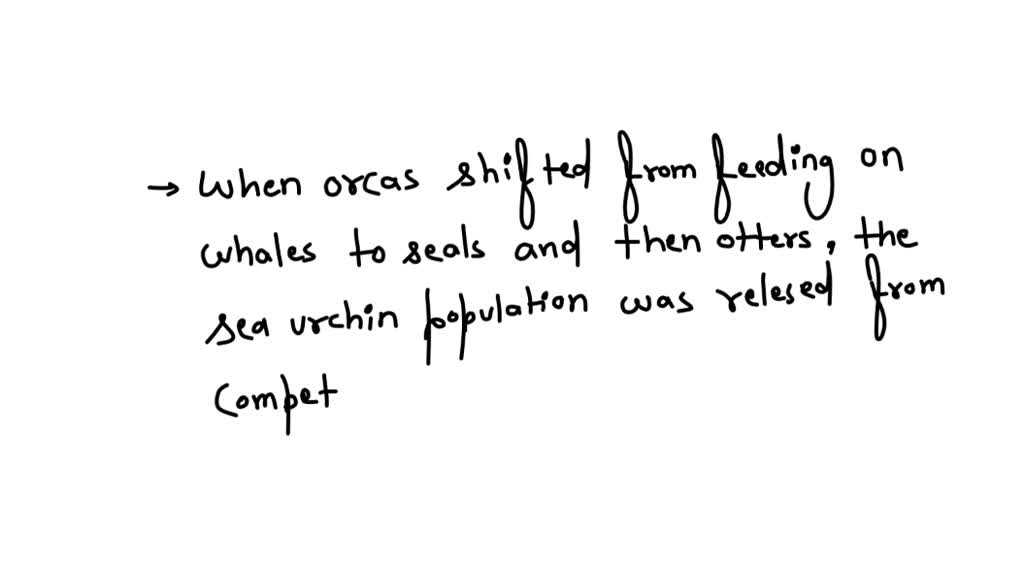 → When orcas shifted from feeding on
whales to seals and then otters, the
sea urchin population was relesed from
Compet